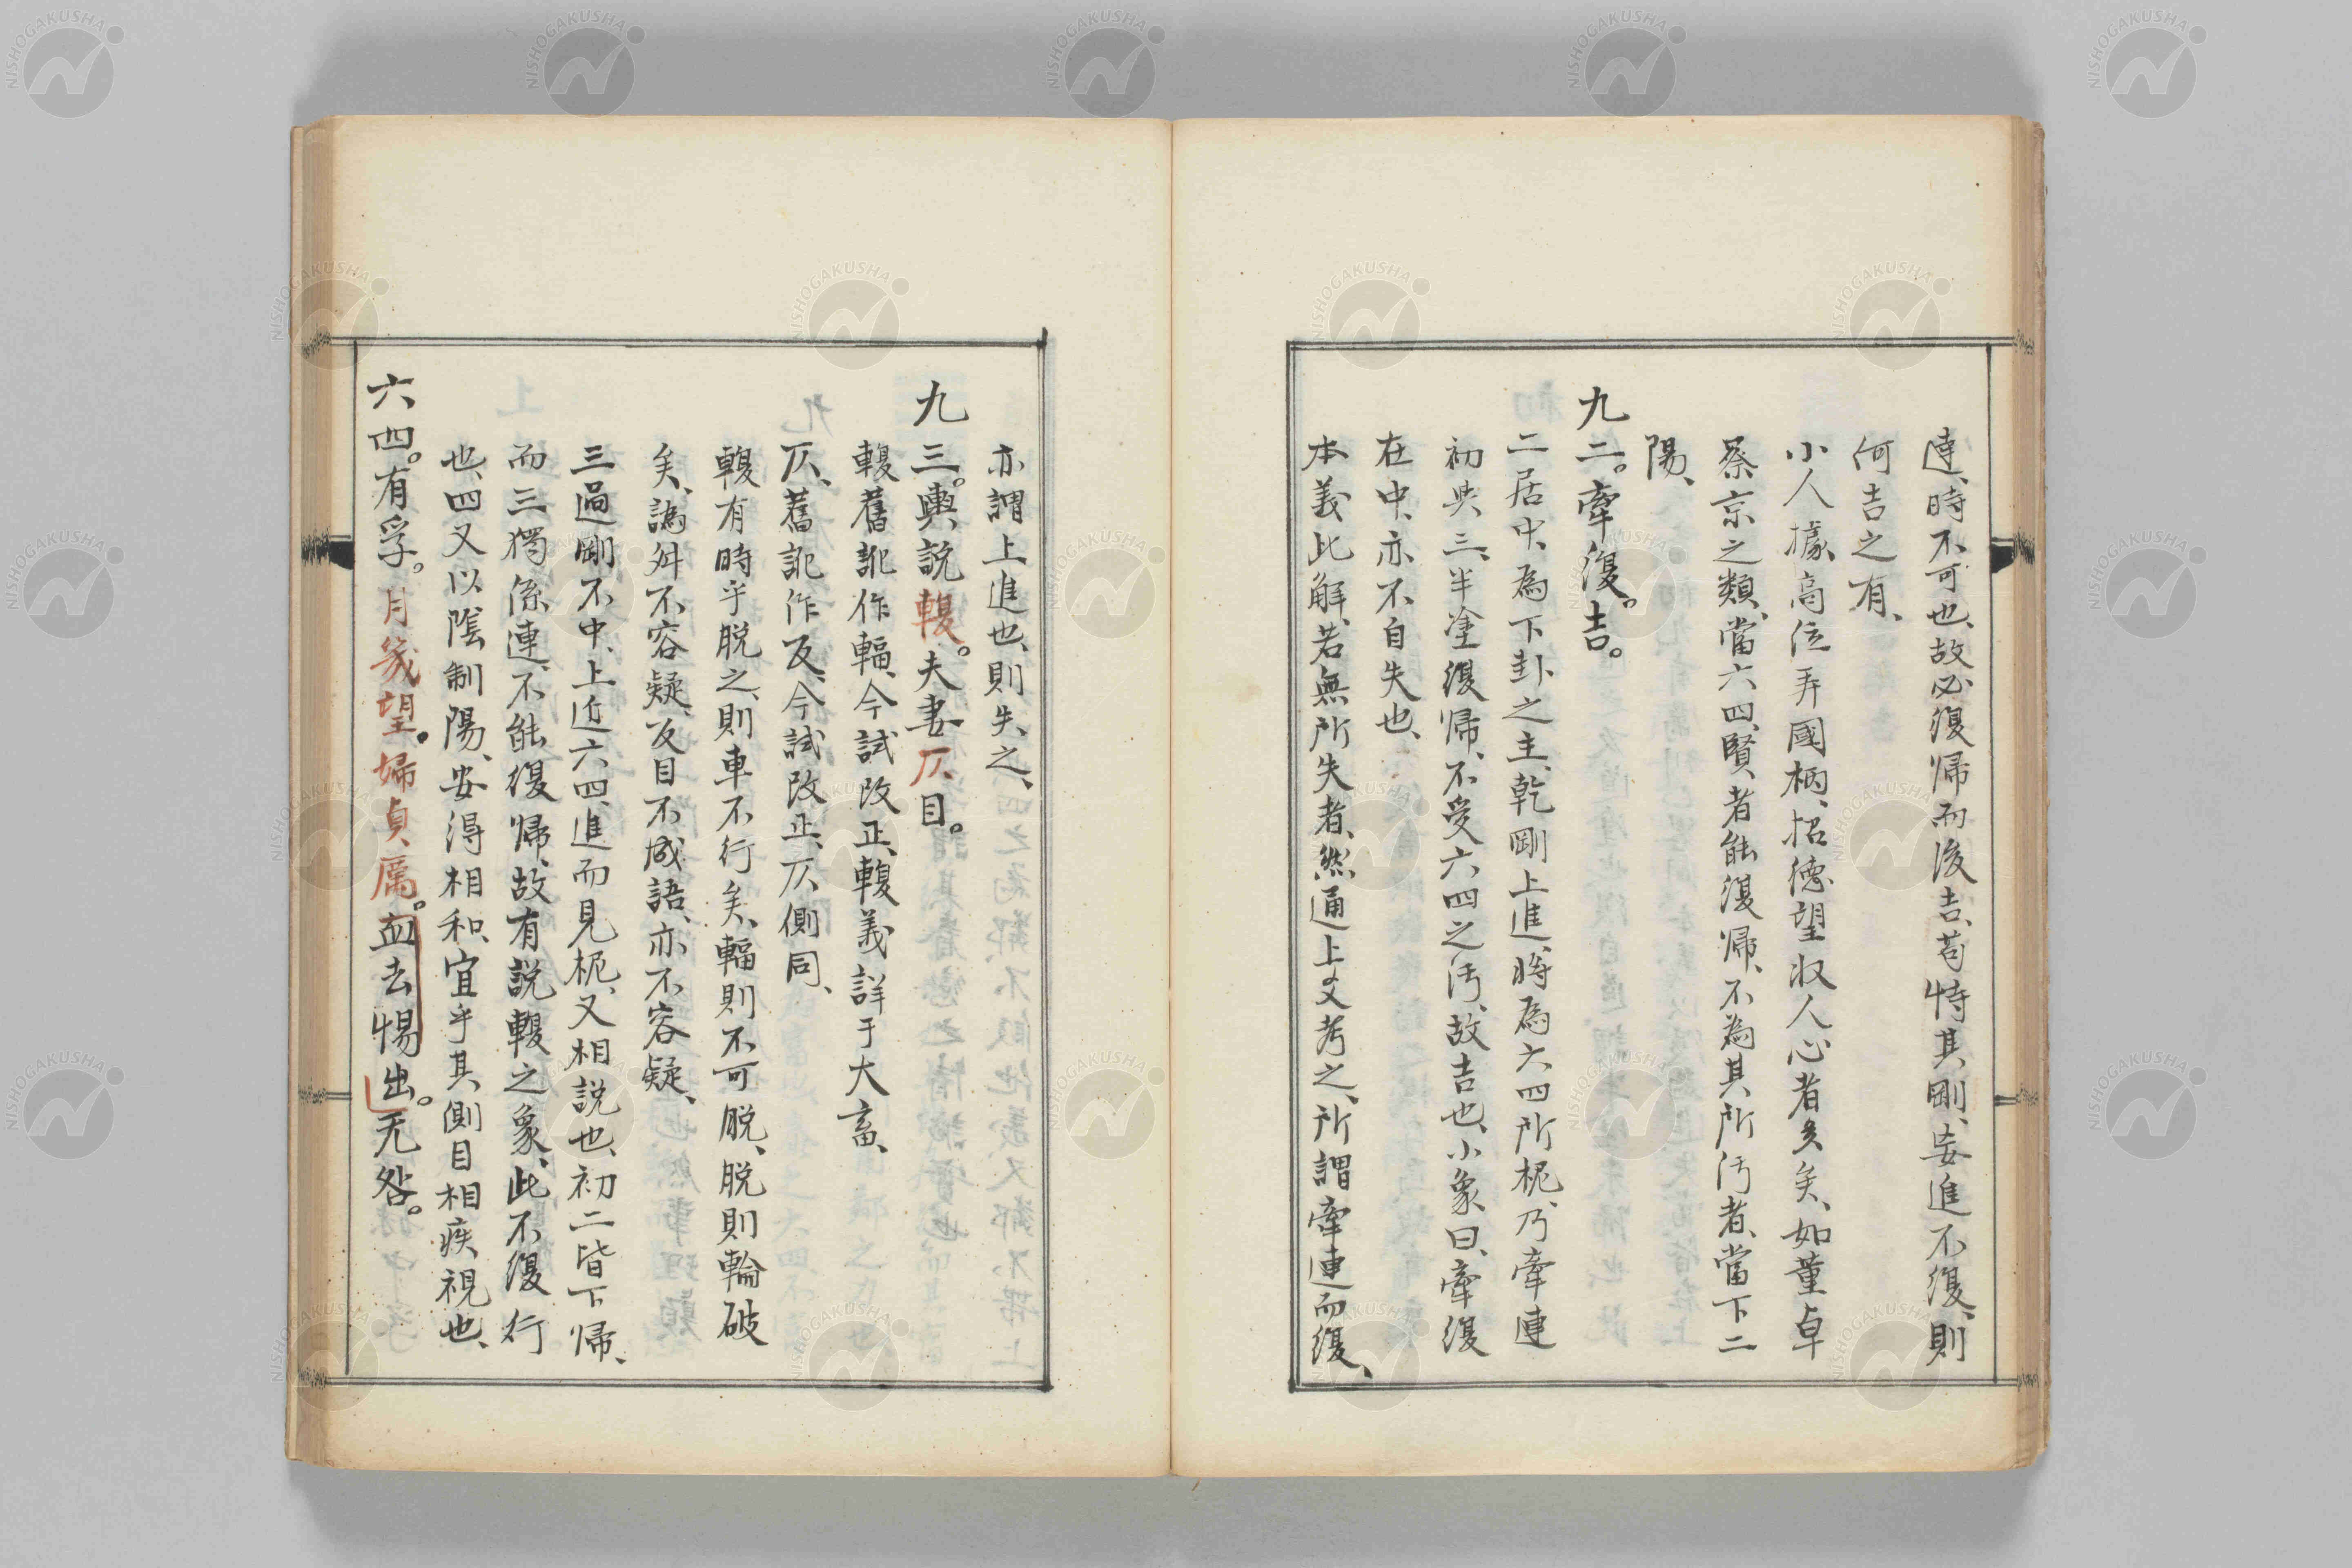 達、時不可也、故必復帰而後吉、苟恃其剛、妄進不復、則
何吉之有、
小人據高位弄國柄、招德望収人心者多矣、如董卓
蔡京之類、當六四、賢者能復帰、不為其所汚者、當下二
陽、
九二。牽復。吉。
二居中、為下卦之主、乾剛上進、將為六四所柅、乃牽連
初與三、半塗復帰、不受六四之汚、故吉也、小象曰、牽復
在中、亦不自失也、
本義此解、若無所失者、然通上爻考之、所謂牽連而復、
亦謂上進也、則失之、
九三。輿説輹。夫妻仄目。
輹舊訛作輻、今試改正、輹義詳于大畜、
仄、舊訛作反、今試改正、仄側同、
輹有時乎脱之、則車不行矣、輻則不可脱、脱則輪破
矣、譌舛不容疑、反目不成語、亦不容疑、
三過剛不中、上近六四、進而見柅、又相説也、初二皆下帰、
而三獨係連、不能復帰、故有説輹之象、此不復行
也、四又以陰制陽、安得相和、宜乎其側目相疾視也、
六四。有孚。月幾望。婦貞厲。血去惕出。无咎。